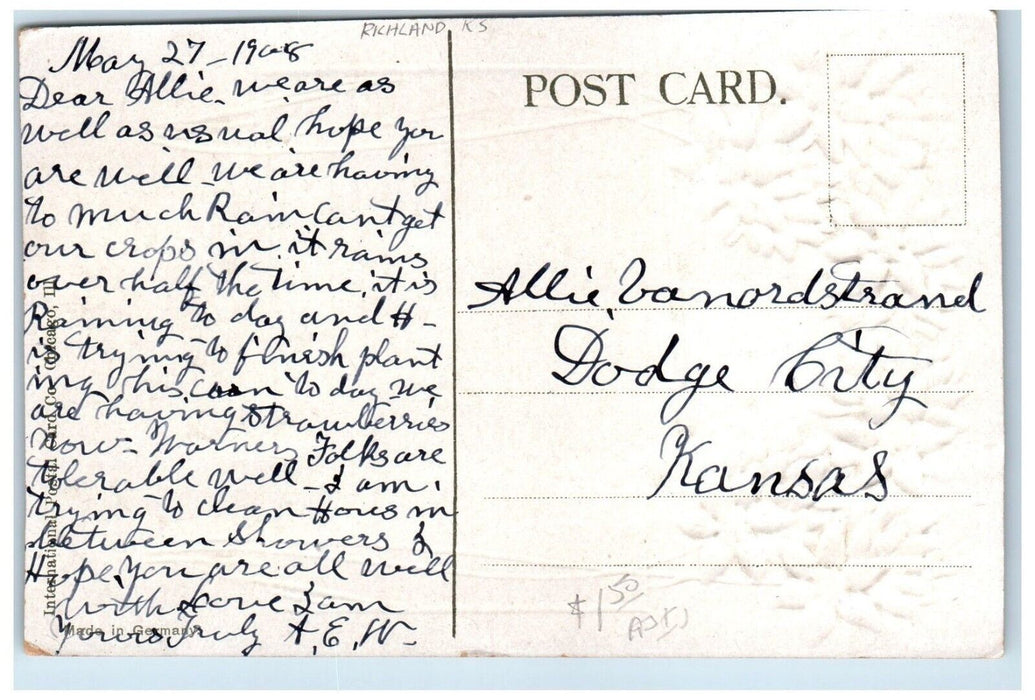 RICHLAND KS
May 27 - 1908
Dear Allie. we are as
well as usual hope you
are well - we are having
to much Rain cant get
our crops in. it rains
over half the time. it is
Raining to day and H-
is trying to finish plant
ing his corn to day we
are having strawberries
now - Warners Folks are
tolerable well - I am
trying to clean House in
between Showers I
Hope you are all well
with Love I am
Yours Truly A. E. W-
International Postal Card Co., Chicago, Ill.
Made in Germany
POST CARD.
Allie Vanordstrand
Dodge City
Kansas
$1.50